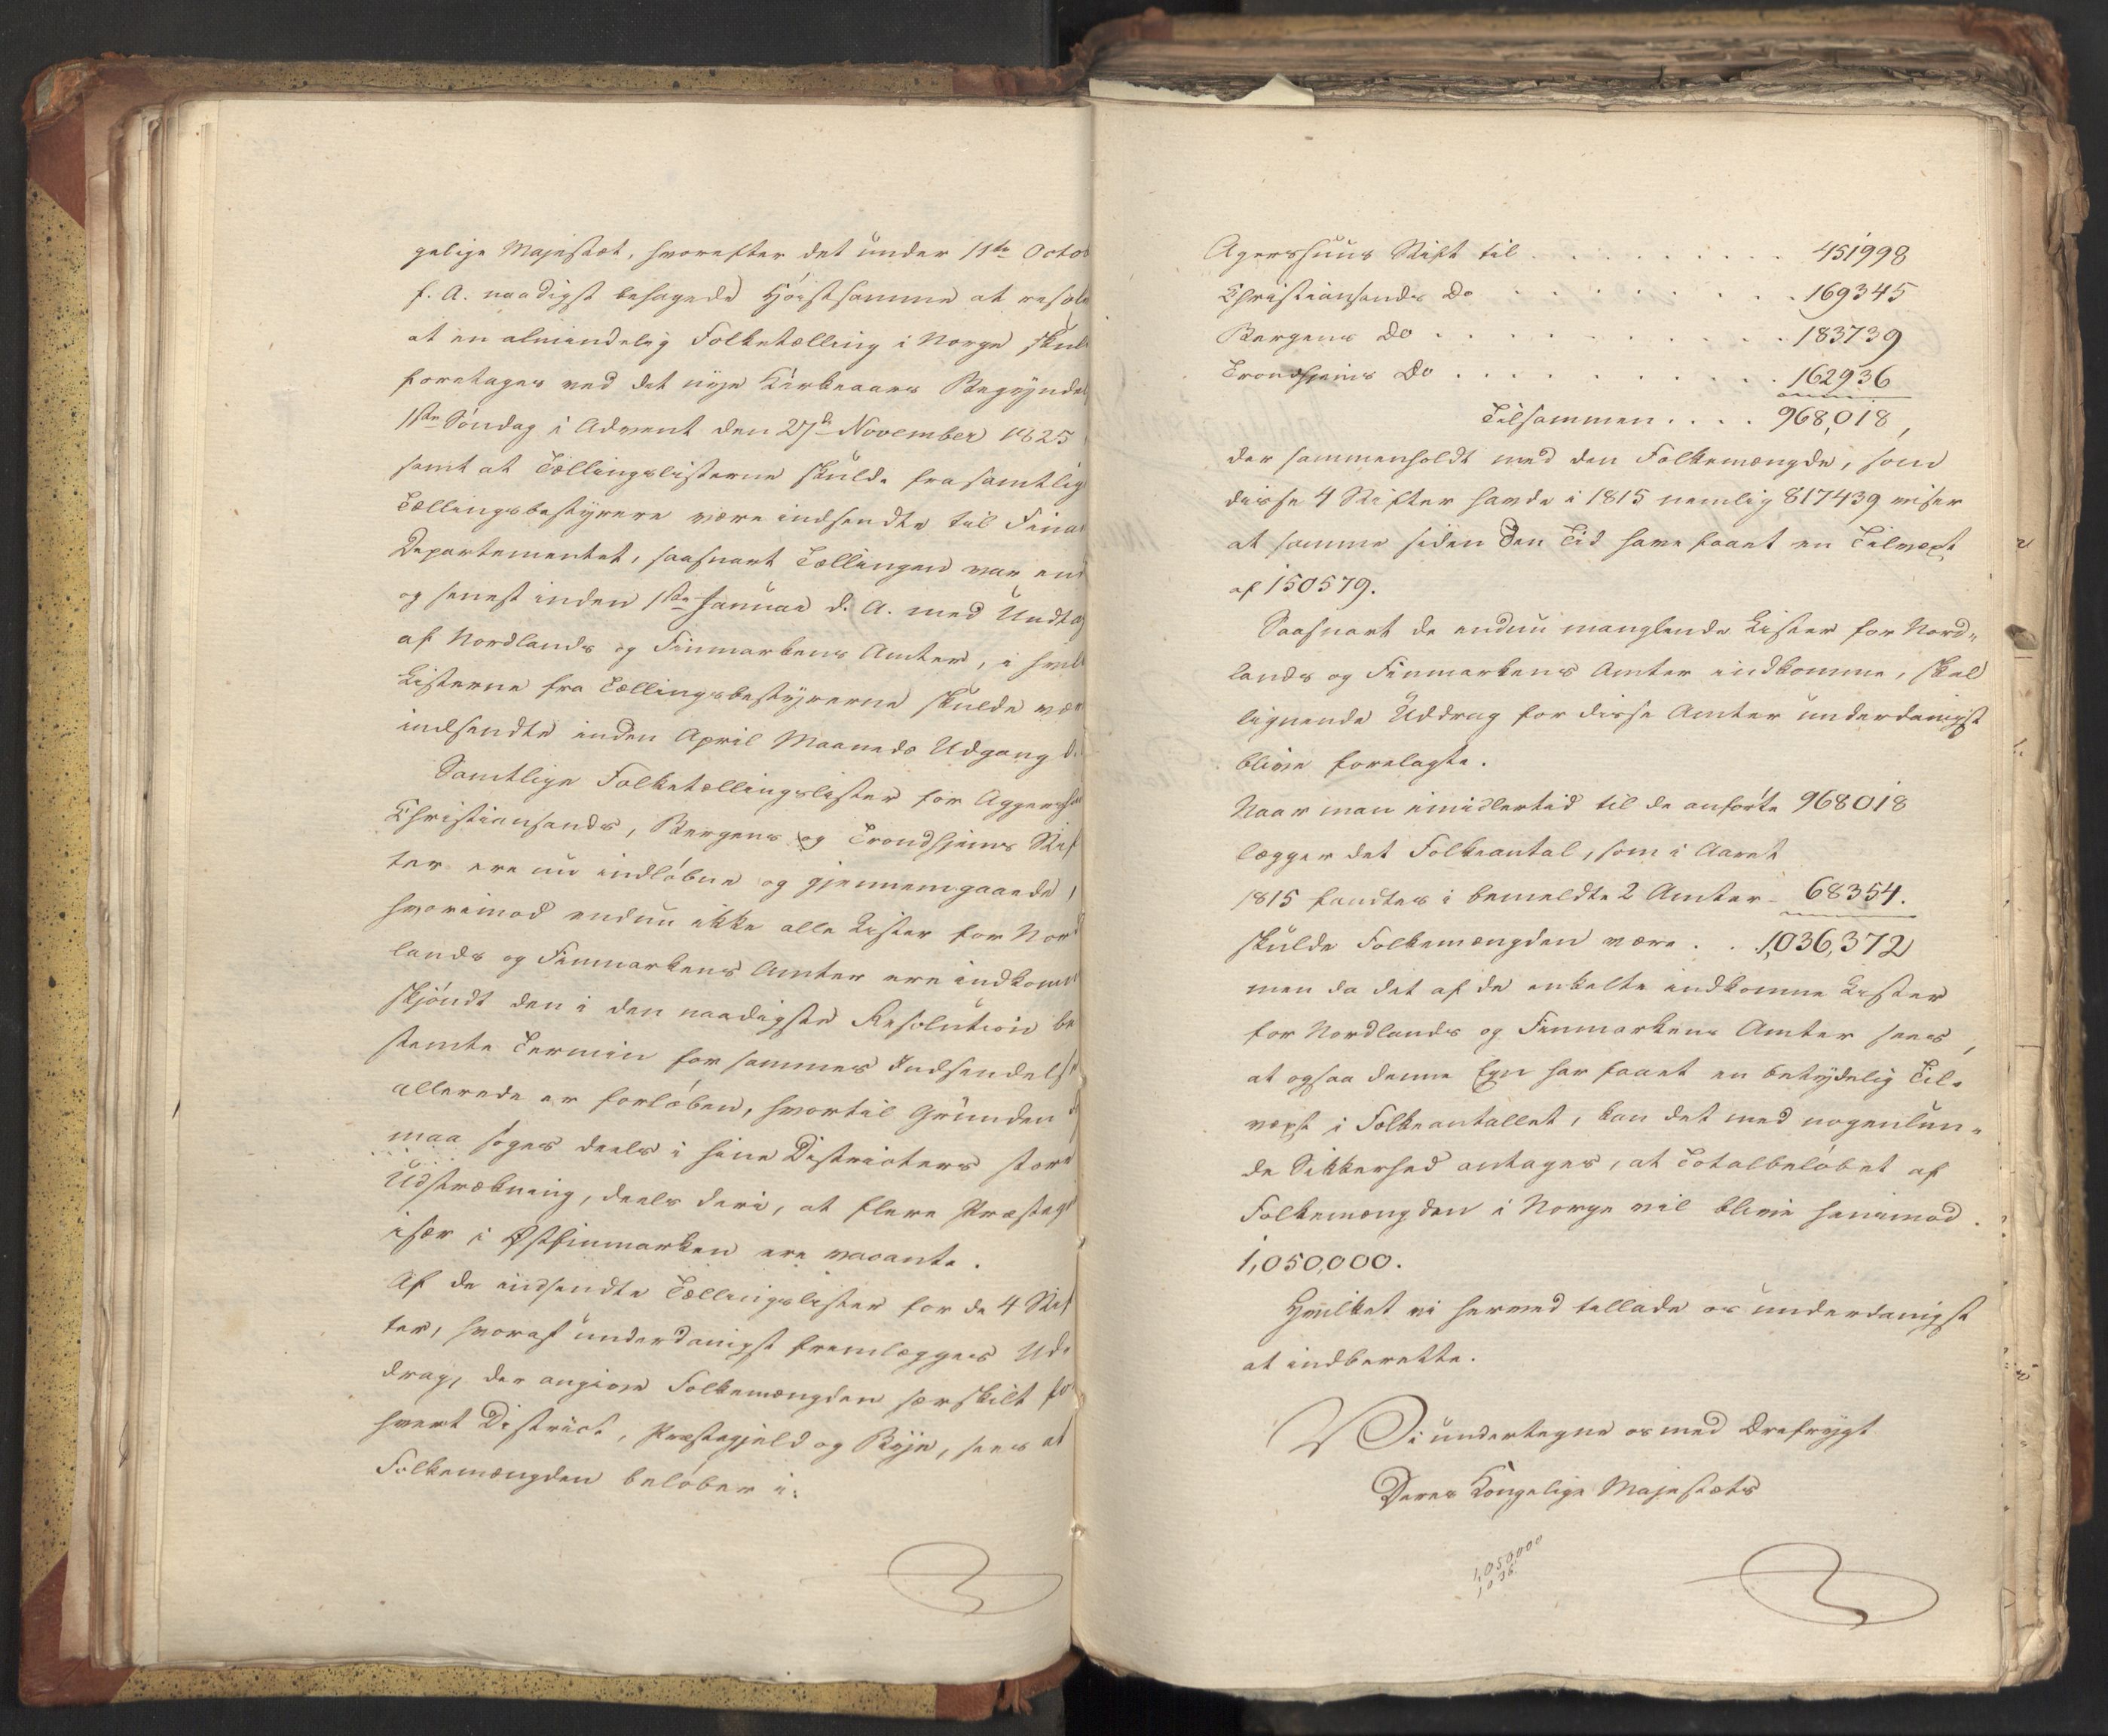 gelige Majestæt, hvorefter det under 11te Octob
f. A. naadigst behagede Høistsamme at resol
at en almindelig Folketælling i Norge skul
foretages ved det nye Kirkeaars Begyndel
1ste Søndag i Advent den 27de November 1825
samt at Tællingslisterne skulde fra samtlig
Tællingsbestyrere være indsendte til Finan
Departementet, saasnart Tællingen var end
og senest inden 1ste Januar d. A. med Undtag
af Nordlands og Finmarkens Amter, i hvil
Listerne fra Tællingsbestyrerne skulde vær
indsendte inden April Maaneds Udgang d.
Samtlige Folketællingslister for Aggershu
Christiansands, Bergens og Trondhjems Stif
ter ere nu indløbne og gjennemgaaede,
hvorimod endnu ikke alle Lister for Nord
lands og Finmarkens Amter ere indkomne
skjøndt den i den naadigste Resolution be
stemte Termin for sammes Indsendelse
allerede er forløben, hvortil Grunden
maa søges deels i hine Districters store
Udstrækning, deels deri, at flere Præstegj
især i Østfinmarken ere vacante.
Af de indsendte Tællingslister for de 4 Stif
ter, hvoraf underdanigst fremlægges Ud-
drag, der angive Folkemængden særskilt for
hvert District, Præstegjeld og Bye, sees at
Folkemængden beløber i:
Agershuus Stift til . . . . . . . . . . 451998
Christiansands Do . . . . . . . . . 169345
Bergens Do . . . . . . . . . . 183739
Trondhjems Do . . . . . . . . . . 162936
Tilsammen . . . . 968,018,
der sammenholdt med den Folkemængde, som
disse 4 Stifter havde i 1815 nemlig 817439 viser
at samme siden den Tid have faaet en Tilvæxt
af 150579.
Saasnart de endnu manglende Lister for Nord-
lands og Finmarkens Amter indkomme, skal
lignende Uddrag for disse Amter underdanigst
blive forelagte.
Naar man imidlertid til de anførte 968018
lægger det Folkeantal, som i Aaret
1815 fandtes i bemeldte 2 Amter - 68354.
skulde Folkemængden være . . 1,036,372
men da det af de enkelte indkomne Lister
for Nordlands og Finmarkens Amter sees,
at ogsaa denne Egn har faaet en betydelig Til-
væxt i Folkeantallet, kan det med nogenlun-
de Sikkerhed antages, at Totalbeløbet af
Folkemængden i Norge vil blive henimod
1,050,000.
Hvilket vi herved tillade os underdanigst
at indberette.
Vi undertegne os med Ærefrygt
Deres Kongelige Majestæts
1,050000
1,036